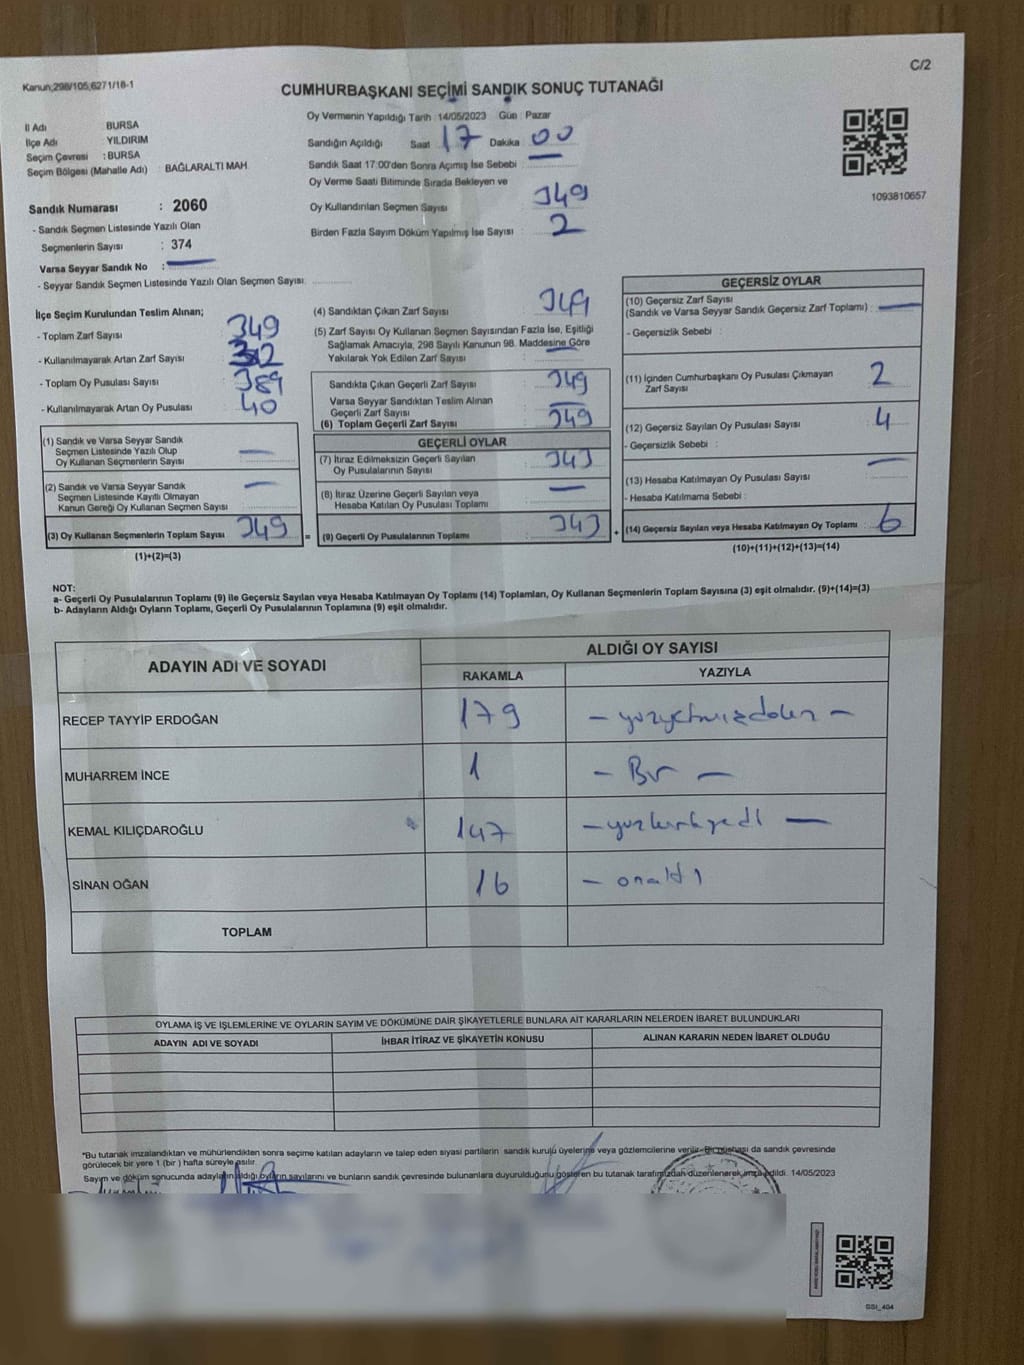 Kanun;298/105;6271/18-1
C/2
CUMHURBAŞKANI SEÇİMİ SANDIK SONUÇ TUTANAĞI
İl Adı BURSA
İlçe Adı YILDIRIM
Seçim Çevresi : BURSA
Seçim Bölgesi (Mahalle Adı) : BAĞLARALTI MAH.
Sandık Numarası : 2060
- Sandık Seçmen Listesinde Yazılı Olan
Seçmenlerin Sayısı : 374
Varsa Seyyar Sandık No :
- Seyyar Sandık Seçmen Listesinde Yazılı Olan Seçmen Sayısı:
Oy Vermenin Yapıldığı Tarih : 14/05/2023 Gün : Pazar
Sandığın Açıldığı Saat 17 Dakika 00
Sandık Saat 17:00'den Sonra Açımış İse Sebebi :
Oy Verme Saati Bitiminde Sırada Bekleyen ve
Oy Kullandırılan Seçmen Sayısı : 349
Birden Fazla Sayım Döküm Yapılmış İse Sayısı : 2
1093810657
İlçe Seçim Kurulundan Teslim Alınan;
- Toplam Zarf Sayısı : 349
- Kullanılmayarak Artan Zarf Sayısı :
- Toplam Oy Pusulası Sayısı : 389
- Kullanılmayarak Artan Oy Pusulası : 40
(1) Sandık ve Varsa Seyyar Sandık
Seçmen Listesinde Yazılı Olup
Oy Kullanan Seçmenlerin Sayısı :
(2) Sandık ve Varsa Seyyar Sandık
Seçmen Listesinde Kayıtlı Olmayan
Kanun Gereği Oy Kullanan Seçmen Sayısı :
(3) Oy Kullanan Seçmenlerin Toplam Sayısı : 349
(1)+(2)=(3)
(4) Sandıktan Çıkan Zarf Sayısı : 349
(5) Zarf Sayısı Oy Kullanan Seçmen Sayısından Fazla İse, Eşitliği
Sağlamak Amacıyla, 298 Sayılı Kanunun 98. Maddesine Göre
Yakılarak Yok Edilen Zarf Sayısı :
Sandıkta Çıkan Geçerli Zarf Sayısı : 349
Varsa Seyyar Sandıktan Teslim Alınan
Geçerli Zarf Sayısı :
(6) Toplam Geçerli Zarf Sayısı : 349
GEÇERLİ OYLAR
(7) İtiraz Edilmeksizin Geçerli Sayılan
Oy Pusulalarının Sayısı : 343
(8) İtiraz Üzerine Geçerli Sayılan veya
Hesaba Katılan Oy Pusulası Toplamı :
= (9) Geçerli Oy Pusulalarının Toplamı : 343 +
GEÇERSİZ OYLAR
(10) Geçersiz Zarf Sayısı
(Sandık ve Varsa Seyyar Sandık Geçersiz Zarf Toplamı) :
- Geçersizlik Sebebi :
(11) İçinden Cumhurbaşkanı Oy Pusulası Çıkmayan
Zarf Sayısı : 2
(12) Geçersiz Sayılan Oy Pusulası Sayısı : 4
- Geçersizlik Sebebi :
(13) Hesaba Katılmayan Oy Pusulası Sayısı :
- Hesaba Katılmama Sebebi :
(14) Geçersiz Sayılan veya Hesaba Katılmayan Oy Toplamı : 6
(10)+(11)+(12)+(13)=(14)
NOT:
a- Geçerli Oy Pusulalarının Toplamı (9) ile Geçersiz Sayılan veya Hesaba Katılmayan Oy Toplamı (14) Toplamları, Oy Kullanan Seçmenlerin Toplam Sayısına (3) eşit olmalıdır. (9)+(14)=(3)
b- Adayların Aldığı Oyların Toplamı, Geçerli Oy Pusulalarının Toplamına (9) eşit olmalıdır.
ADAYIN ADI VE SOYADI
ALDIĞI OY SAYISI
RAKAMLA YAZIYLA
RECEP TAYYİP ERDOĞAN 179 - yüzyetmişdokuz -
MUHARREM İNCE 1 - Bir -
KEMAL KILIÇDAROĞLU 147 - yüzkırkyedi -
SİNAN OĞAN 16 - onaltı
TOPLAM
OYLAMA İŞ VE İŞLEMLERİNE VE OYLARIN SAYIM VE DÖKÜMÜNE DAİR ŞİKAYETLERLE BUNLARA AİT KARARLARIN NELERDEN İBARET BULUNDUKLARI
ADAYIN ADI VE SOYADI İHBAR İTİRAZ VE ŞİKAYETİN KONUSU ALINAN KARARIN NEDEN İBARET OLDUĞU
*Bu tutanak imzalandıktan ve mühürlendikten sonra seçime katılan adayların ve talep eden siyasi partilerin sandık kurulu üyelerine veya gözlemcilerine verilir. Bir nüshası da sandık çevresinde
görülecek bir yere 1 (bir ) hafta süreyle asılır.
Sayım ve döküm sonucunda adayların aldığı oyların sayılarını ve bunların sandık çevresinde bulunanlara duyurulduğunu gösteren bu tutanak tarafımızdan düzenlenerek imza edildi. 14/05/2023
SSI_404